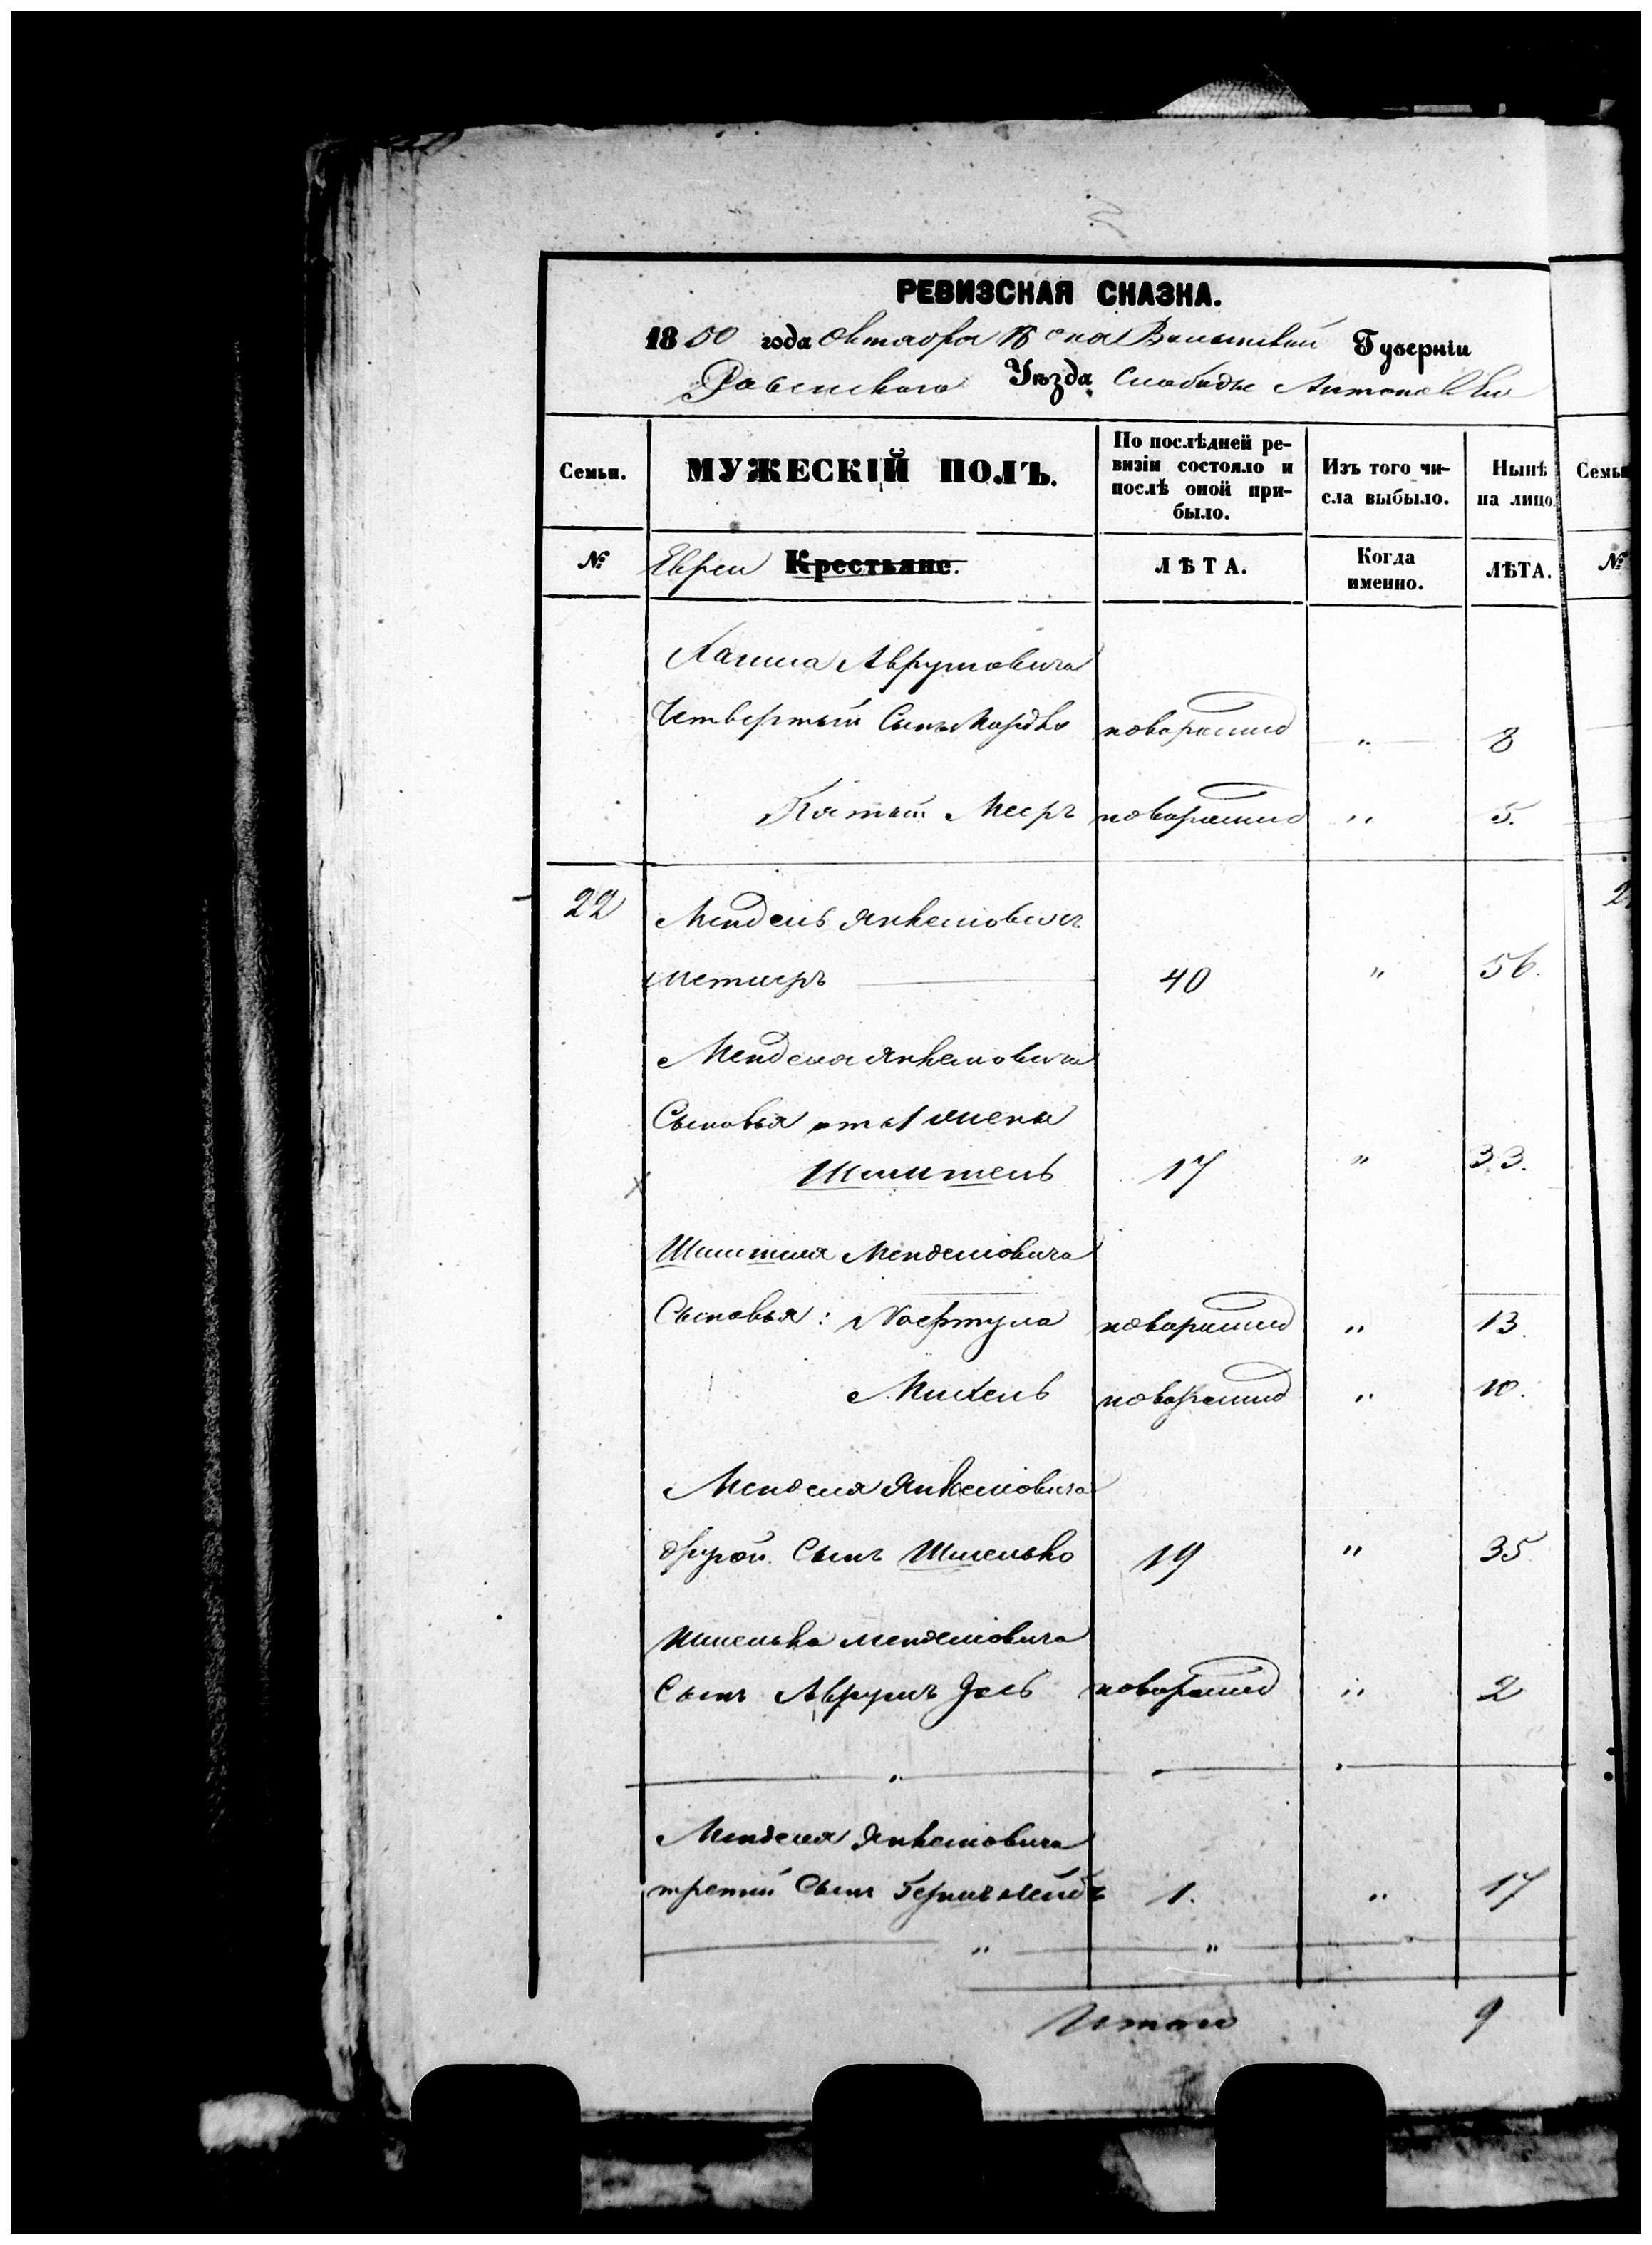 РЕВИЗСКАЯ СКАЗКА.
1850 года Октября 16 дня Волынской Губерніи
Ровенскаго Уѣзда Слободы Антоновки
Семьи.
МУЖЕСКІЙ ПОЛЪ.
По послѣдней ре-
визіи состояло и
послѣ оной при-
было.
Изъ того чи-
сла выбыло.
Нынѣ
на лицо.
Семьи
№
Евреи Крестьяне.
ЛѢТА.
Когда
именно.
ЛѢТА.
№
Аврумовича
Четвертый Сынъ Мордко новорожд " 8
Пятый Мееръ новорожд " 5.
22 Мендель Янкелевичъ
40 " 56.
Менделя Янкелевича
Сыновья отъ 1 жены
17 " 33.
Менделевича
Сыновья: Нафтула новорожд " 13.
Михель новорожд " 10.
Менделя Янкелевича
другой Сынъ Шмелько 19 " 35
Шмелька Менделевича
Сынъ Аврумъ новорожд " 2
Менделя Янкелевича
третий Сынъ 1. " 17
Итого 9